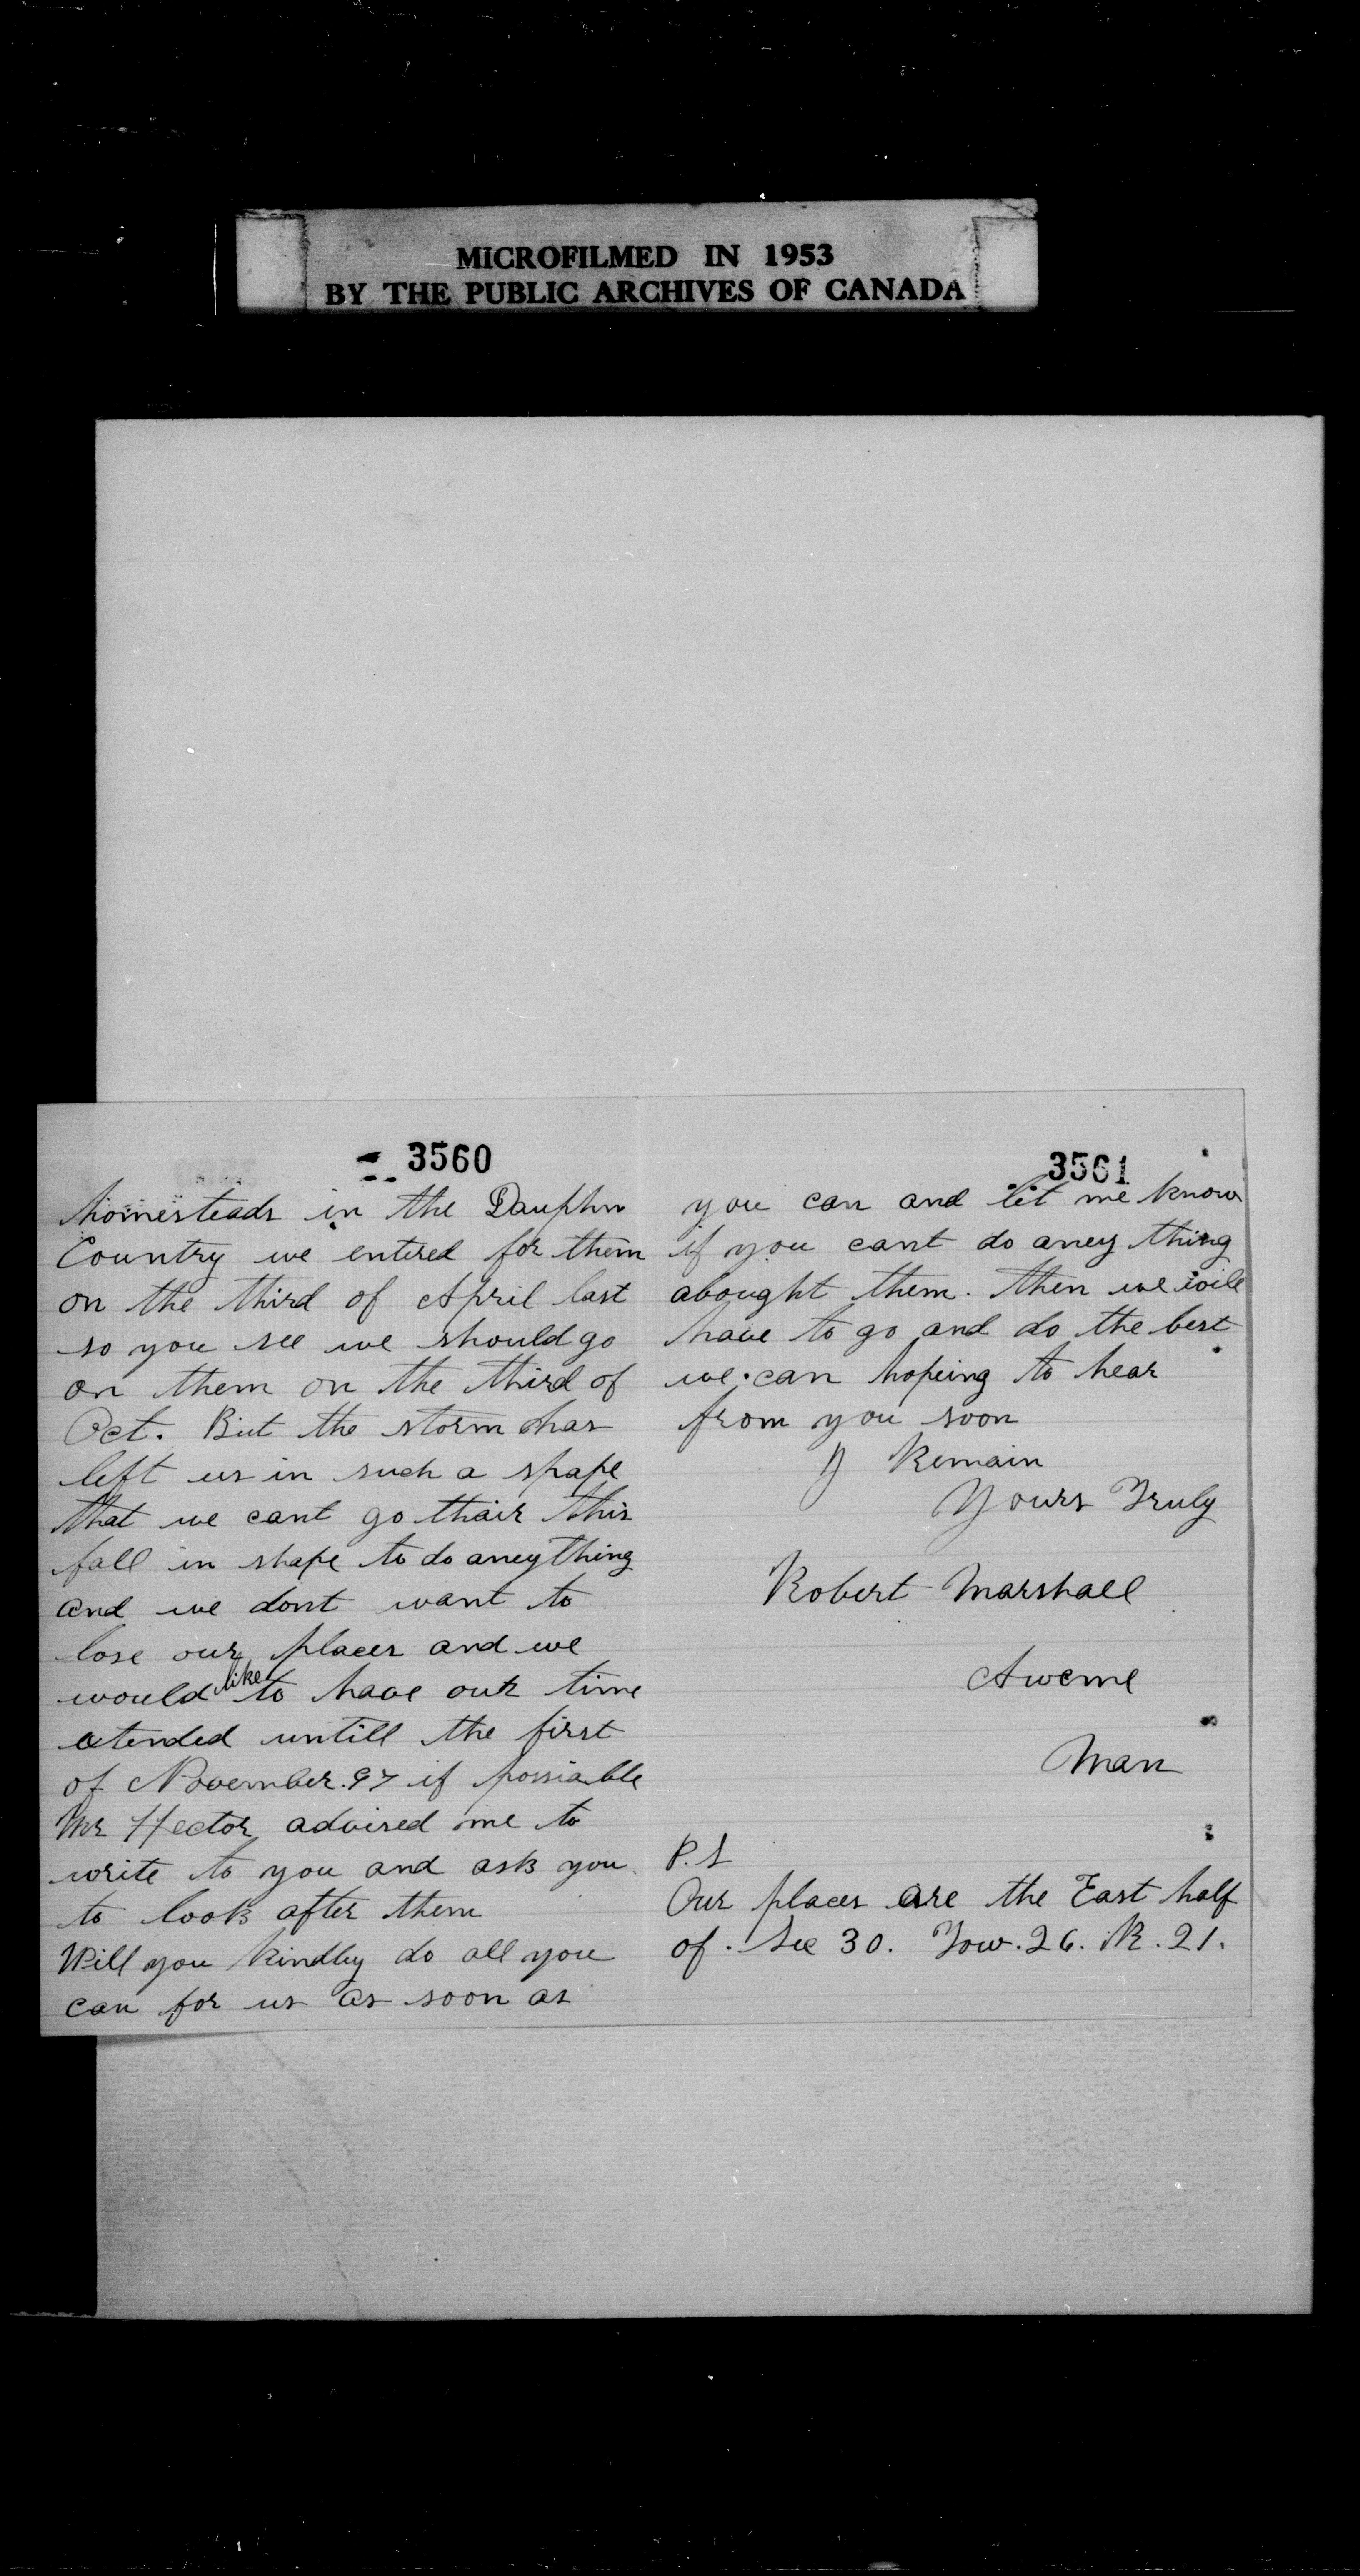 MICROFILMED IN 1953
BY THE PUBLIC ARCHIVES OF CANADA
3560
homesteads in the Dauphn
Country we entered for them
on the third of April last
so you see we should go
on them on the third of
Oct. But the storm has
left us in such a shape
that we cant go thair this
fall in shape to do aneything
and we dont want to
lose our places and we
would like to have our time
extended untill the first
of November. 97 if possiable
Mr Hector advised me to
write to you and ask you
to look after them
Will you kindley do all you
can for us as soon as
3561
you can and let me know
if you cant do aney thing
abought them. then we will
have to go and do the best
we can hopeing to hear
from you soon
I Remain
Yours Truly
Robert Marshall
Aweme
Man
P.S
Our places are the East half
of. Sec 30. Tow. 26. R. 21.